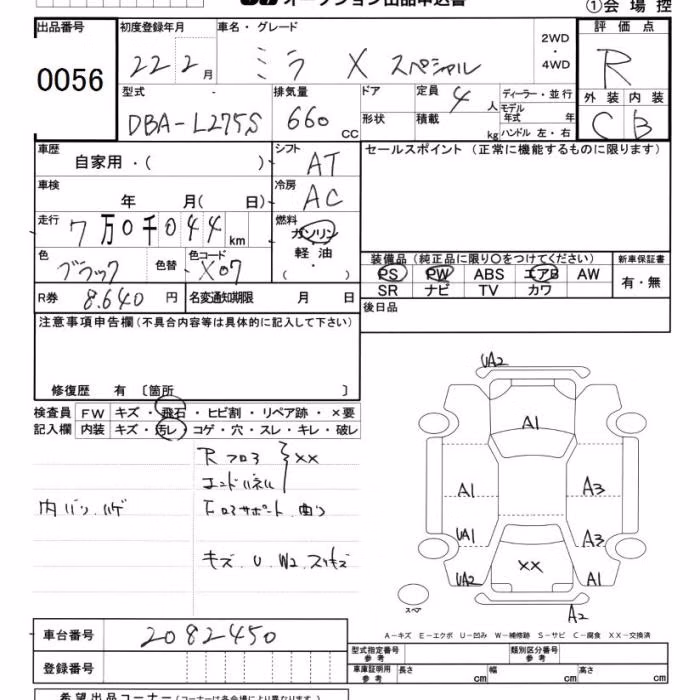 オークション出品申込書
①会場控
出品番号 0056
初度登録年月 22 2 月
車名・グレード ミラ X スペシャル
2WD・4WD
評価点 R
外装 C 内装 B
型式 DBA-L275S
排気量 660 CC
ドア
形状
定員 4 人
積載 kg
ディーラー・並行
モデル年式 年
ハンドル 左・右
車歴 自家用・( )
シフト AT
車検 年 月( 日)
冷房 AC
走行 7万0千044 km
燃料 ガソリン
軽油
・
( )
色 ブラック 色替
色コード X07
R券 8,640 円
名変通知期限 月 日
セールスポイント (正常に機能するものに限ります)
装備品 (純正品に限り○をつけてください)
PS PW ABS エアB AW
SR ナビ TV カワ
新車保証書
有・無
後日品
注意事項申告欄(不具合内容等は具体的に記入して下さい)
修復歴 有 〔箇所 〕
検査員記入欄
FW キズ・飛石・ヒビ割・リペア跡・×要
内装 キズ・汚レ・コゲ・穴・スレ・キレ・破レ
Rフロア
エンドパネル
XX
内バン ハゲ
キズ.U.W2.スリキズ
UA2
A1
A1
A3
UA1
A3
UA2
XX
A1
A2
スペア
A-キズ E-エクボ U-凹み W-補修跡 S-サビ C-腐食 XX-交換済
車台番号 2082450
登録番号
型式指定番号 参考
類別区分番号 参考
車庫証明用 参考 長さ cm 幅 cm 高さ cm
希望出品コーナー (コーナーは各会場で異なります)